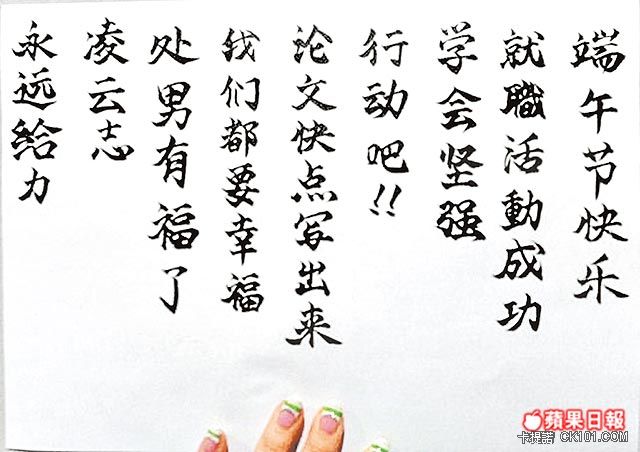 端午节快乐
就職活動成功
学会坚强
行动吧!!
论文快点写出来
我们都要幸福
处男有福了
凌云志
永远给力
蘋果日報
卡提諾 CK101.COM